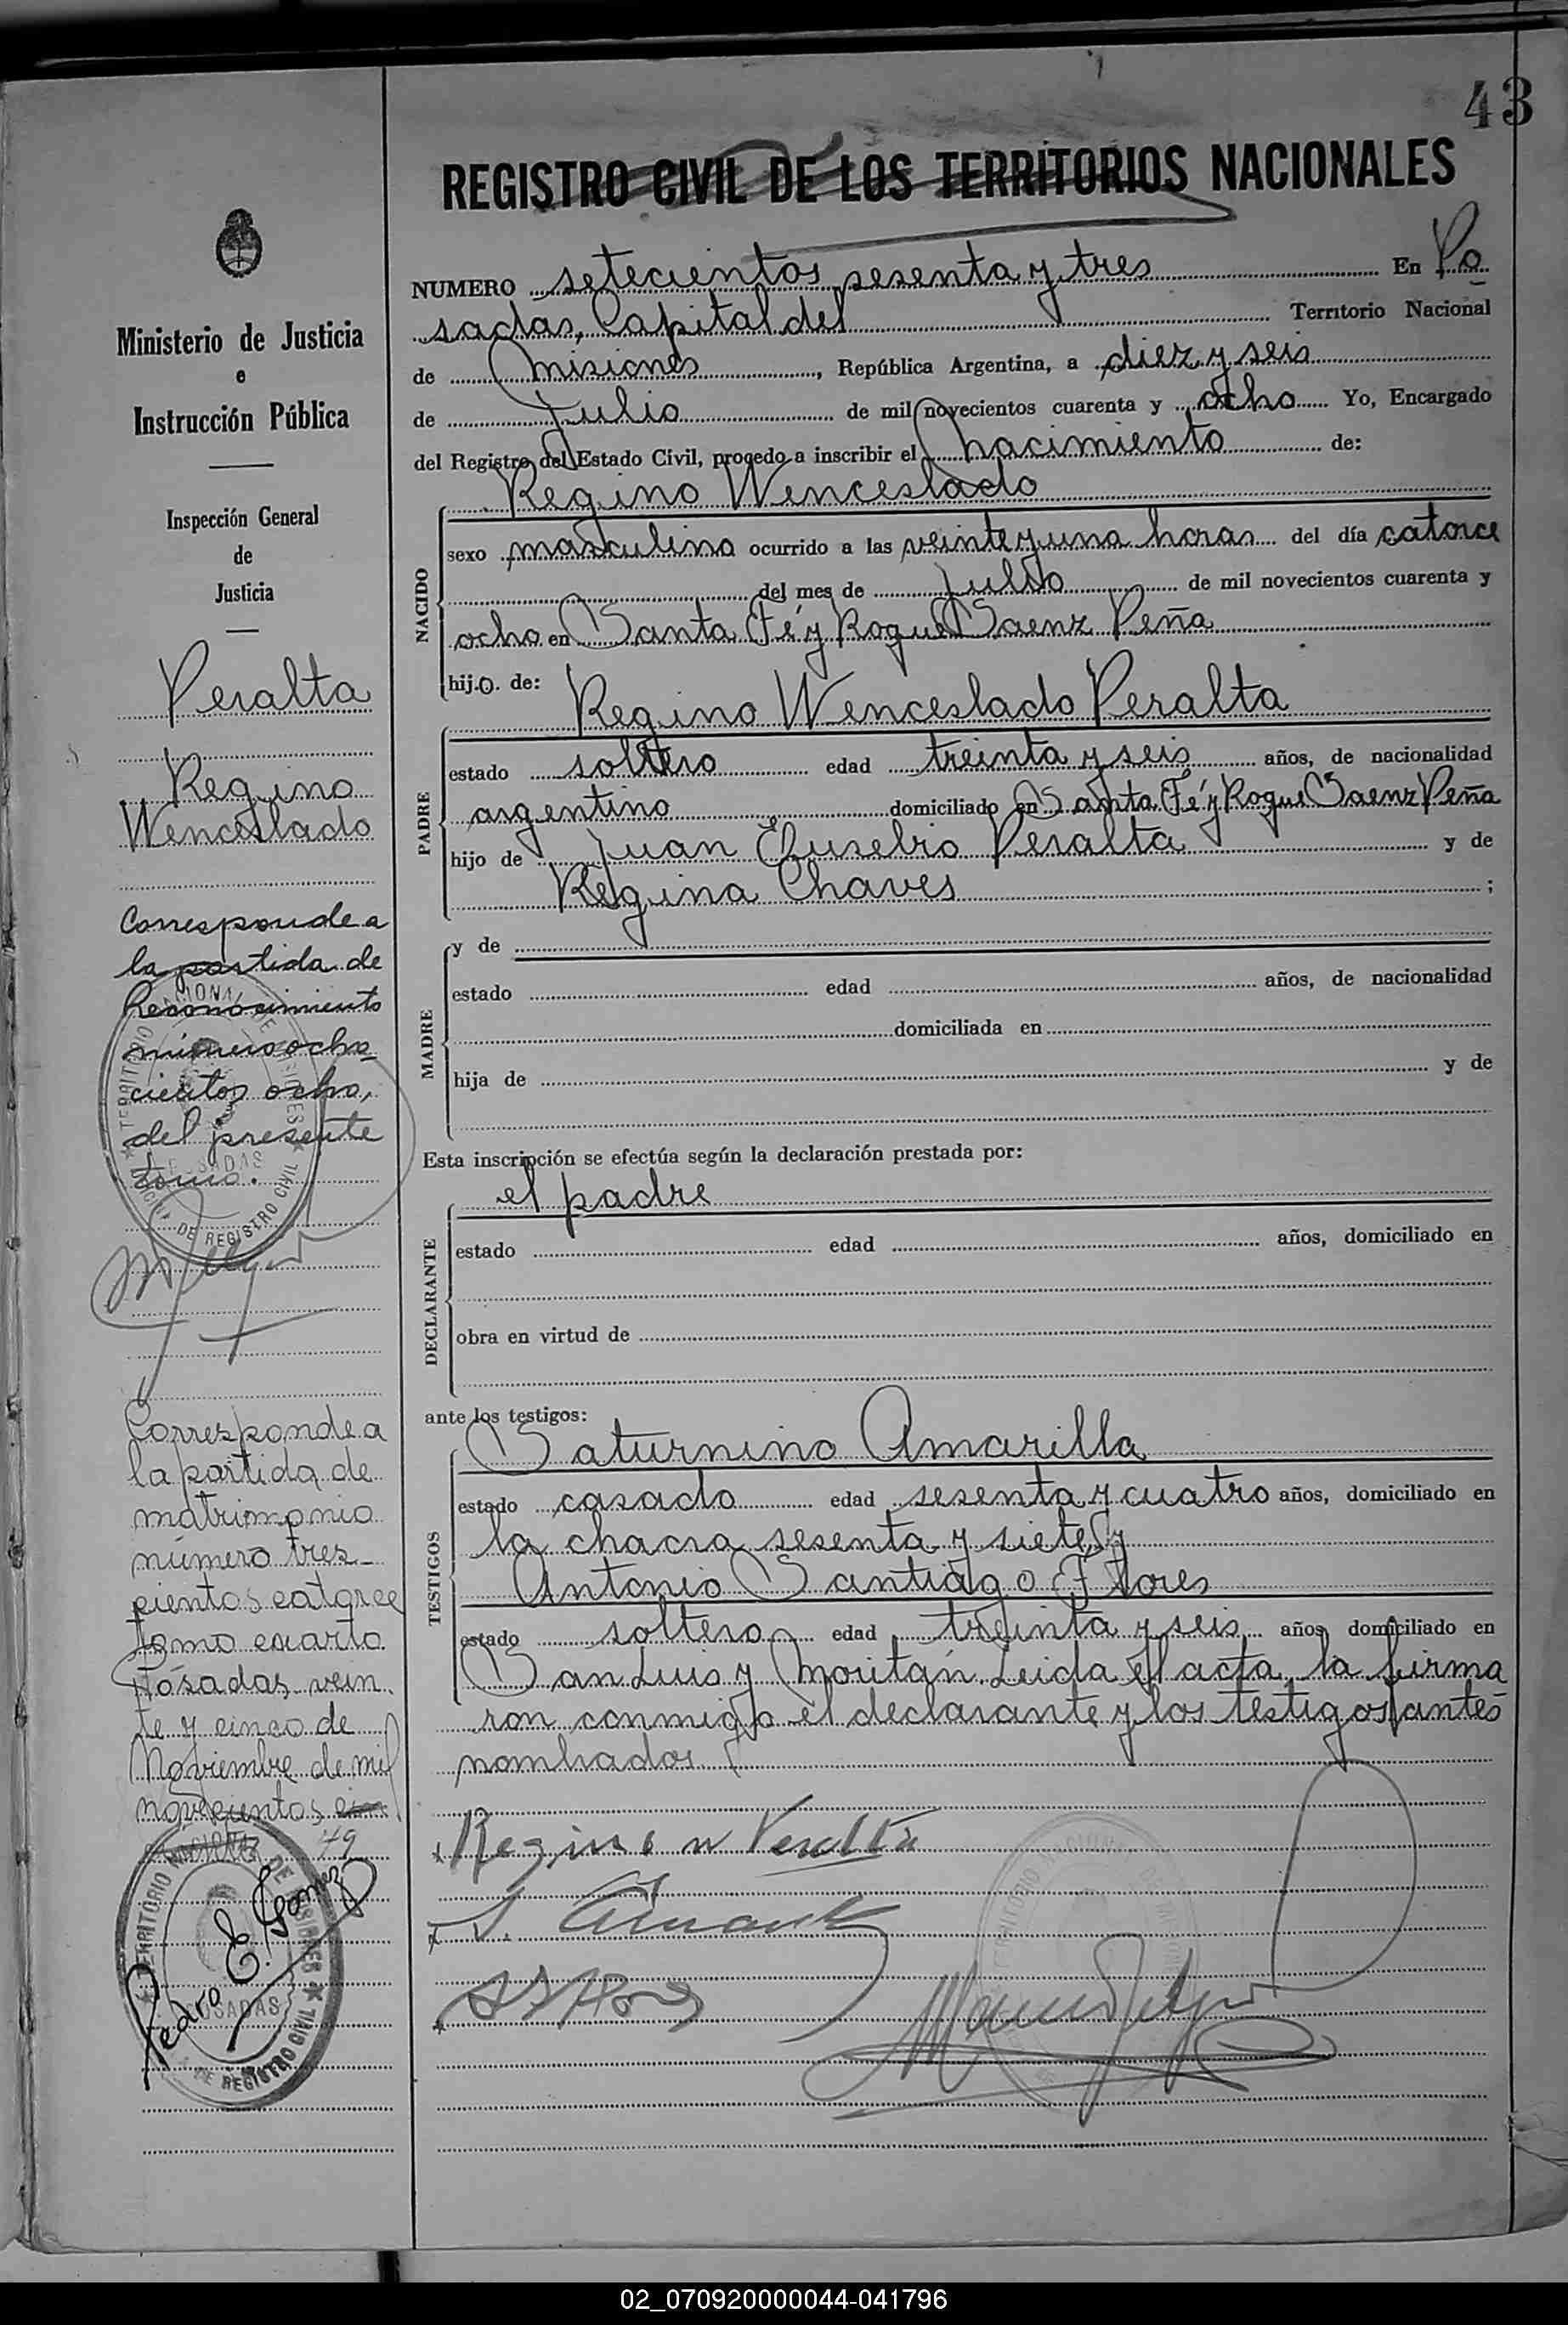 43
REGISTRO CIVIL DE LOS TERRITORIOS NACIONALES
Ministerio de Justicia
e
Instrucción Pública
Inspección General
de
Justicia
Peralta
Regino
Wenceslado
Corresponde a
la partida de
Reconocimiento
número ocho-
cientos ocho,
del presente
tomo.
TERRITORIO NACIONAL DE MISIONES
POSADAS
DE REGISTRO CIVIL
Corresponde a
la partida de
matrimonio
número tres-
cientos catorce
tomo cuarto
Posadas vein
te y cinco de
Noviembre de mil
novecientos
49
TERRITORIO NACIONAL DE MISIONES
Pedro E. Gomez
POSADAS
DE REGISTRO CIVIL
NUMERO setecientos sesenta y tres En Po
sadas, Capital del Territorio Nacional
de Misiones, República Argentina, a diez y seis
de Julio de mil novecientos cuarenta y ocho Yo, Encargado
del Registro del Estado Civil, procedo a inscribir el nacimiento de:
NACIDO
Regino Wenceslado
sexo masculino ocurrido a las veinte y una horas del día catorce
del mes de Julio de mil novecientos cuarenta y
ocho en Santa Fé y Roque Saenz Peña
hijo de:
PADRE
Regino Wenceslado Peralta
estado soltero edad treinta y seis años, de nacionalidad
argentino domiciliado en Santa Fé y Roque Saenz Peña
hijo de Juan Eusebio Peralta y de
Regina Chaves ;
MADRE
y de
estado edad años, de nacionalidad
domiciliada en
hija de y de
Esta inscripción se efectúa según la declaración prestada por:
DECLARANTE
el padre
estado edad años, domiciliado en
obra en virtud de
ante los testigos:
TESTIGOS
Saturnino Amarilla
estado casado edad sesenta y cuatro años, domiciliado en
la chacra sesenta y siete y
Antonio Santiago Flores
estado soltero edad treinta y seis años, domiciliado en
San Luis y Moritán. Leida el acta, la firma
ron conmigo el declarante y los testigos antes
nombrados
Regino W Peralta
02_070920000044-041796